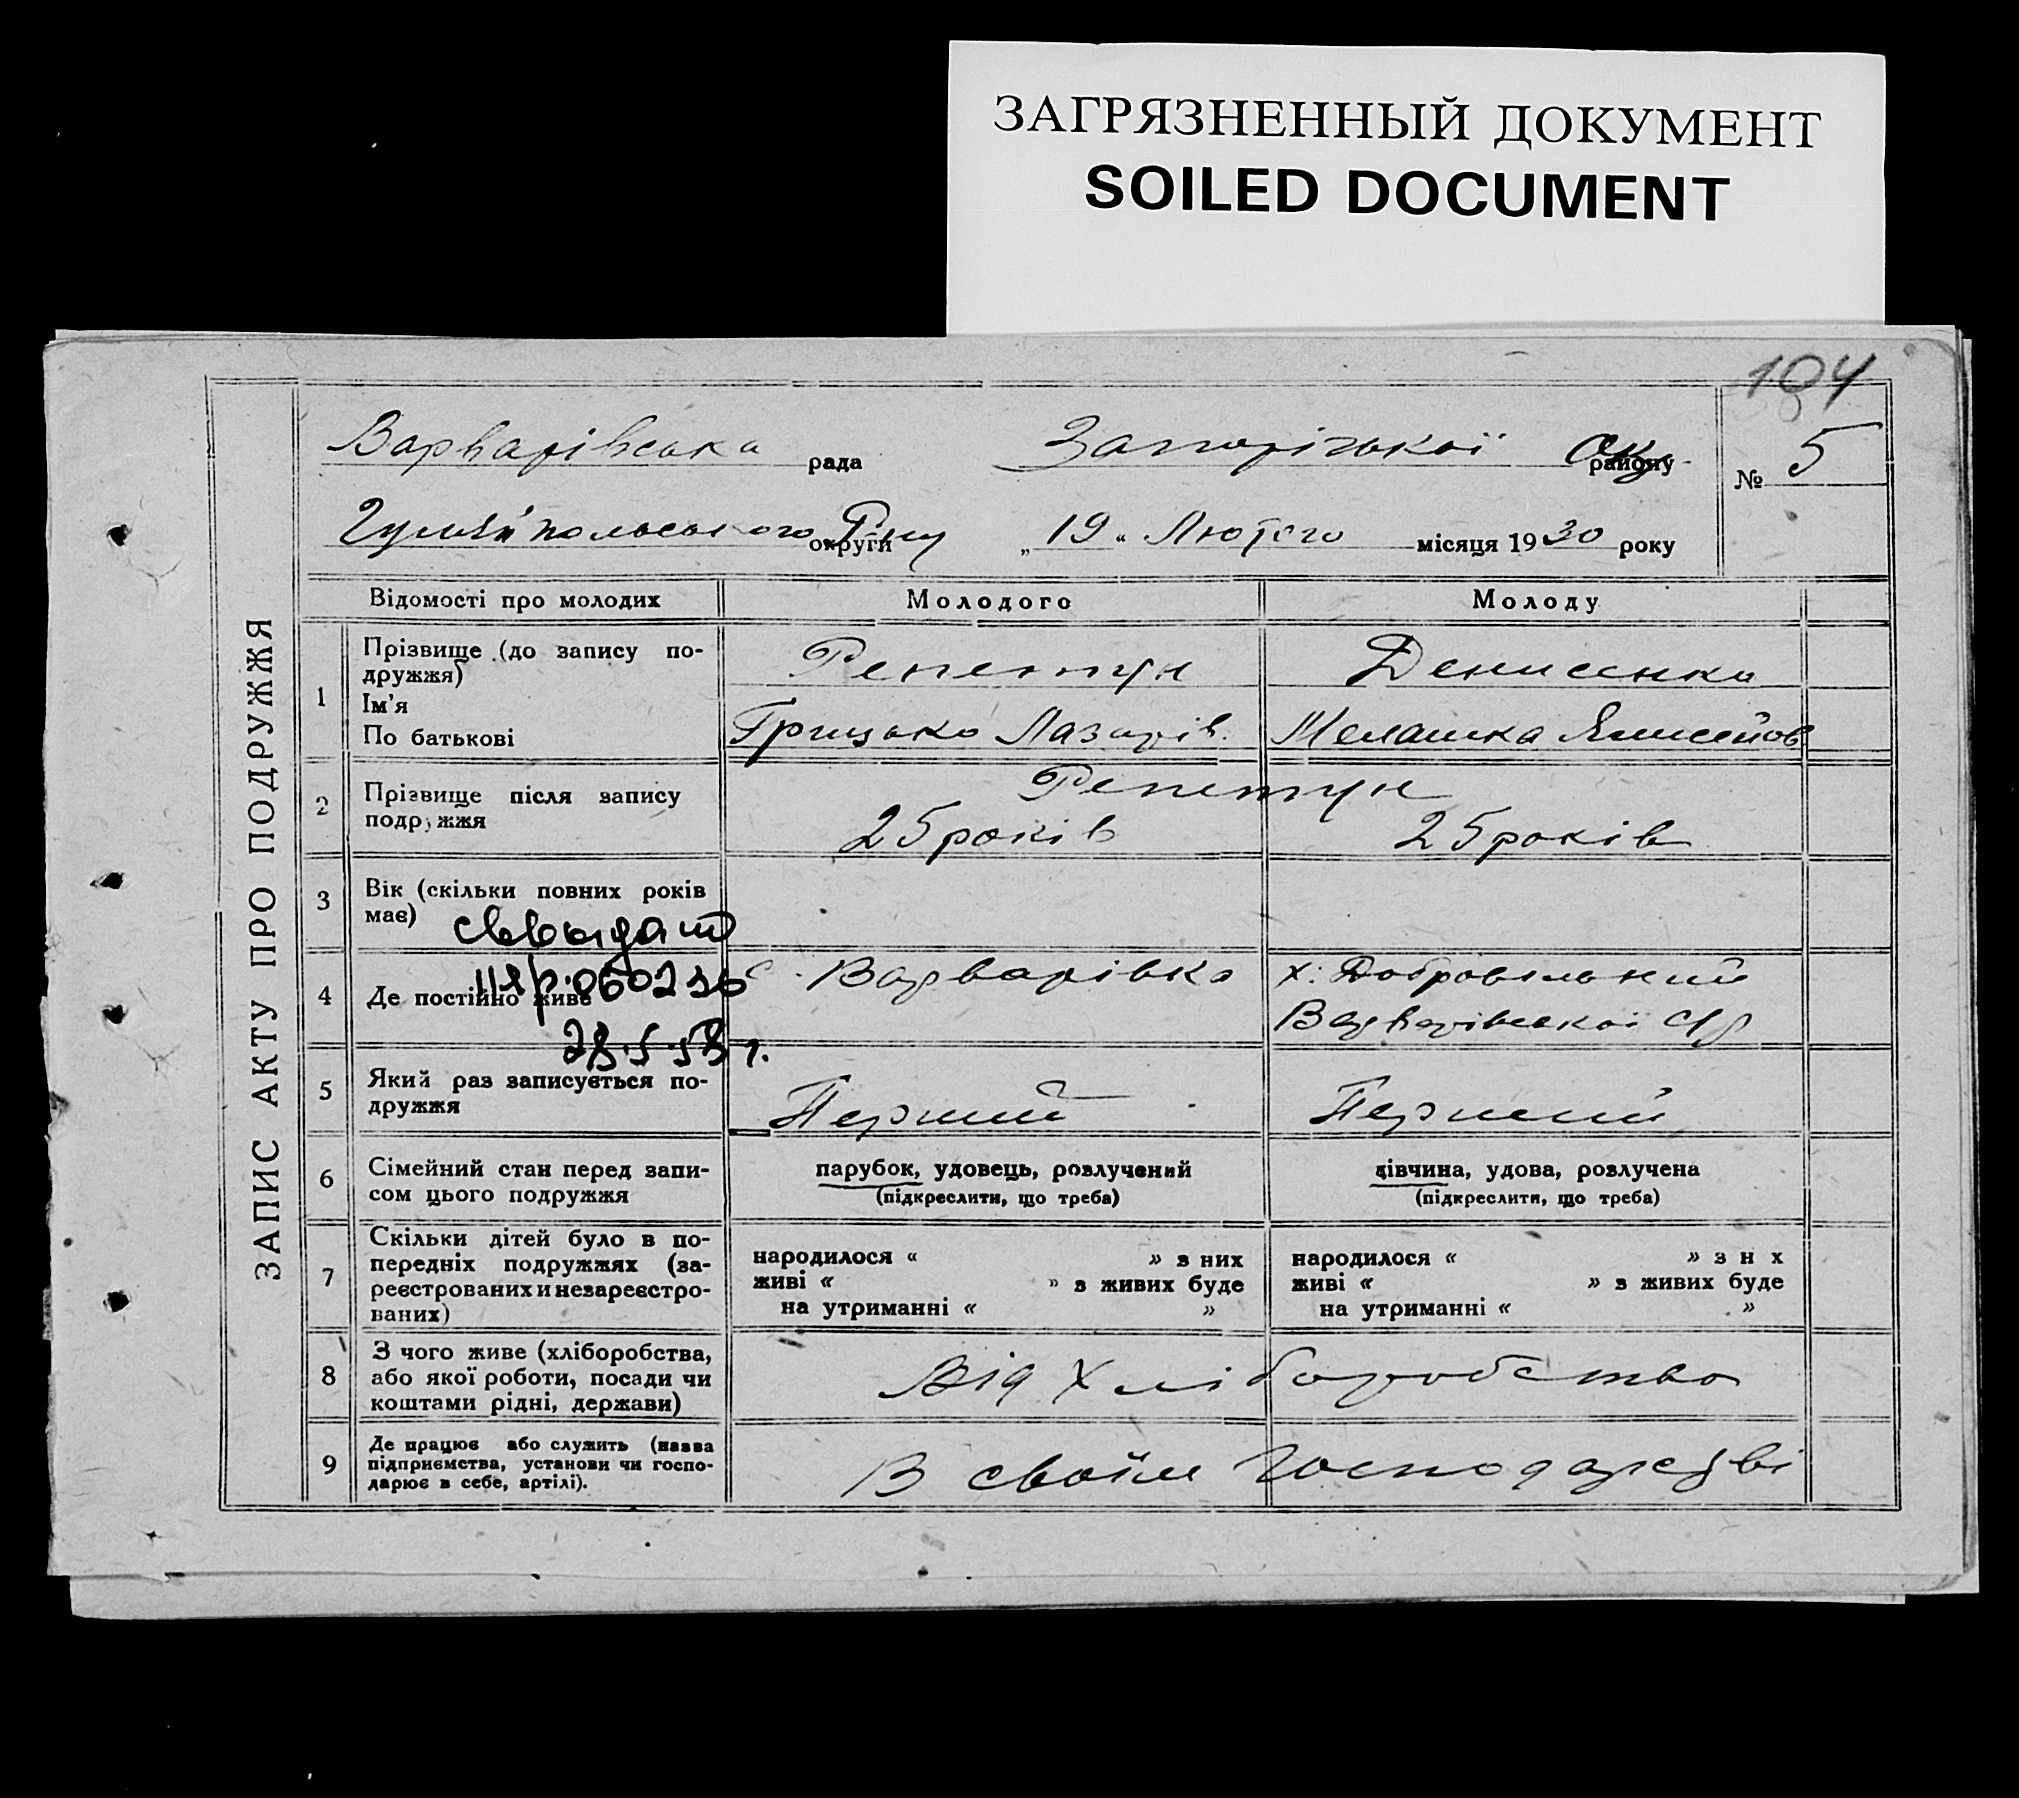 ЗАГРЯЗНЕННЫЙ ДОКУМЕНТ
SOILED DOCUMENT
104
ЗАПИС АКТУ ПРО ПОДРУЖЖЯ
Варварівська рада Запорізької Окр. району № 5
Гуляйпольського Р-ну округи „19“ Лютого місяця 1930 року
Відомості про молодих Молодого Молоду
1 Прізвище (до запису по-
дружжя) Репетун Денисенко
Ім'я
По батькові Грицько Лазарів. Мелашка
2 Прізвище після запису
подружжя Репетун
25 років 25 років
3 Вік (скільки повних років
має)
28.5.58 г.
4 Де постійно живе с. Варварівка х. Добровільний
Варварівської с/р
5 Який раз записується по-
дружжя Перший Перший
6 Сімейний стан перед запи-
сом цього подружжя парубок, удовець, розлучений дівчина, удова, розлучена
(підкреслити, що треба) (підкреслити, що треба)
7 Скільки дітей було в по-
передніх подружжях (за-
реєстрованих и незареєстро-
ваних)
народилося « » з них народилося « » з н х
живі « » з живих буде живі « » з живих буде
на утриманні « » на утриманні « »
8 З чого живе (хліборобства,
або якої роботи, посади чи
коштами рідні, держави) Від Хліборобства
9 Де працює або служить (назва
підприємства, установи чи госпо-
дарює в себе, артілі). В своїм Господарстві